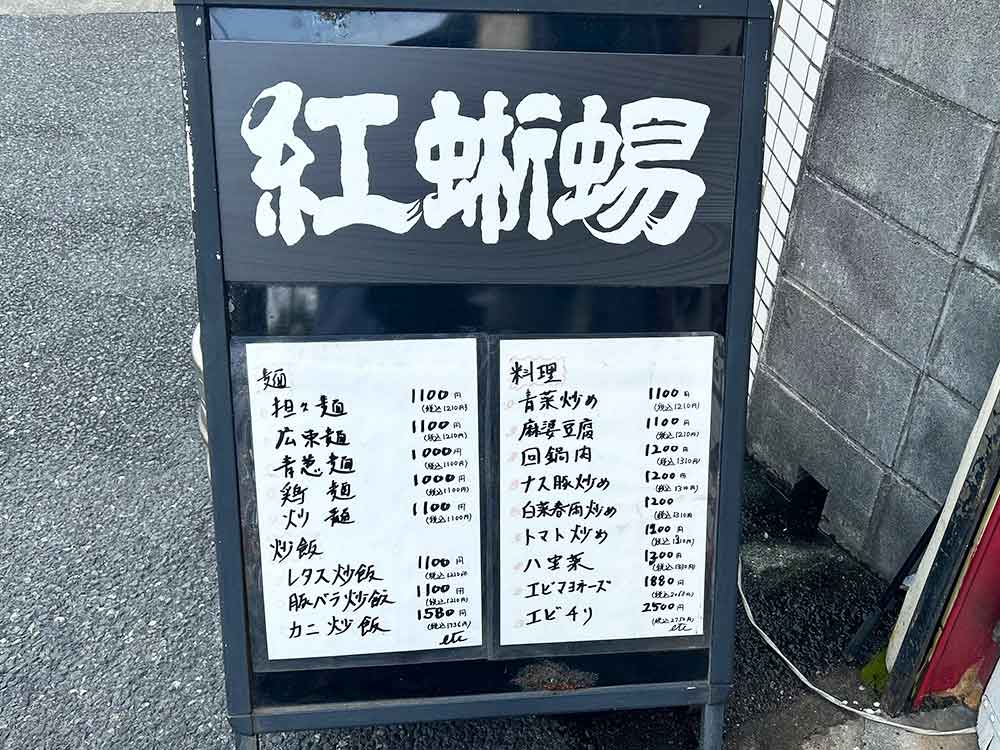 紅蜥蜴
麺
担々麺 1100円
(税込1210円)
広東麺 1100円
(税込1210円)
青葱麺 1000円
(税込1100円)
鶏麺 1000円
(税込1100円)
炒麺 1100円
(税込1100円)
炒飯
レタス炒飯 1100円
(税込1210円)
豚バラ炒飯 1100円
(税込1210円)
カニ炒飯 1580円
(税込1736円)
etc
料理
青菜炒め 1100円
(税込1210円)
麻婆豆腐 1100円
(税込1210円)
回鍋肉 1200円
(税込1310円)
ナス豚炒め 1200円
(税込1310円)
白菜春雨炒め 1200
(税込1310円)
トマト炒め 1200円
八宝菜 1300円
エビマヨネーズ 1880円
(税込2068円)
エビチリ 2500円
(税込2750円)
etc